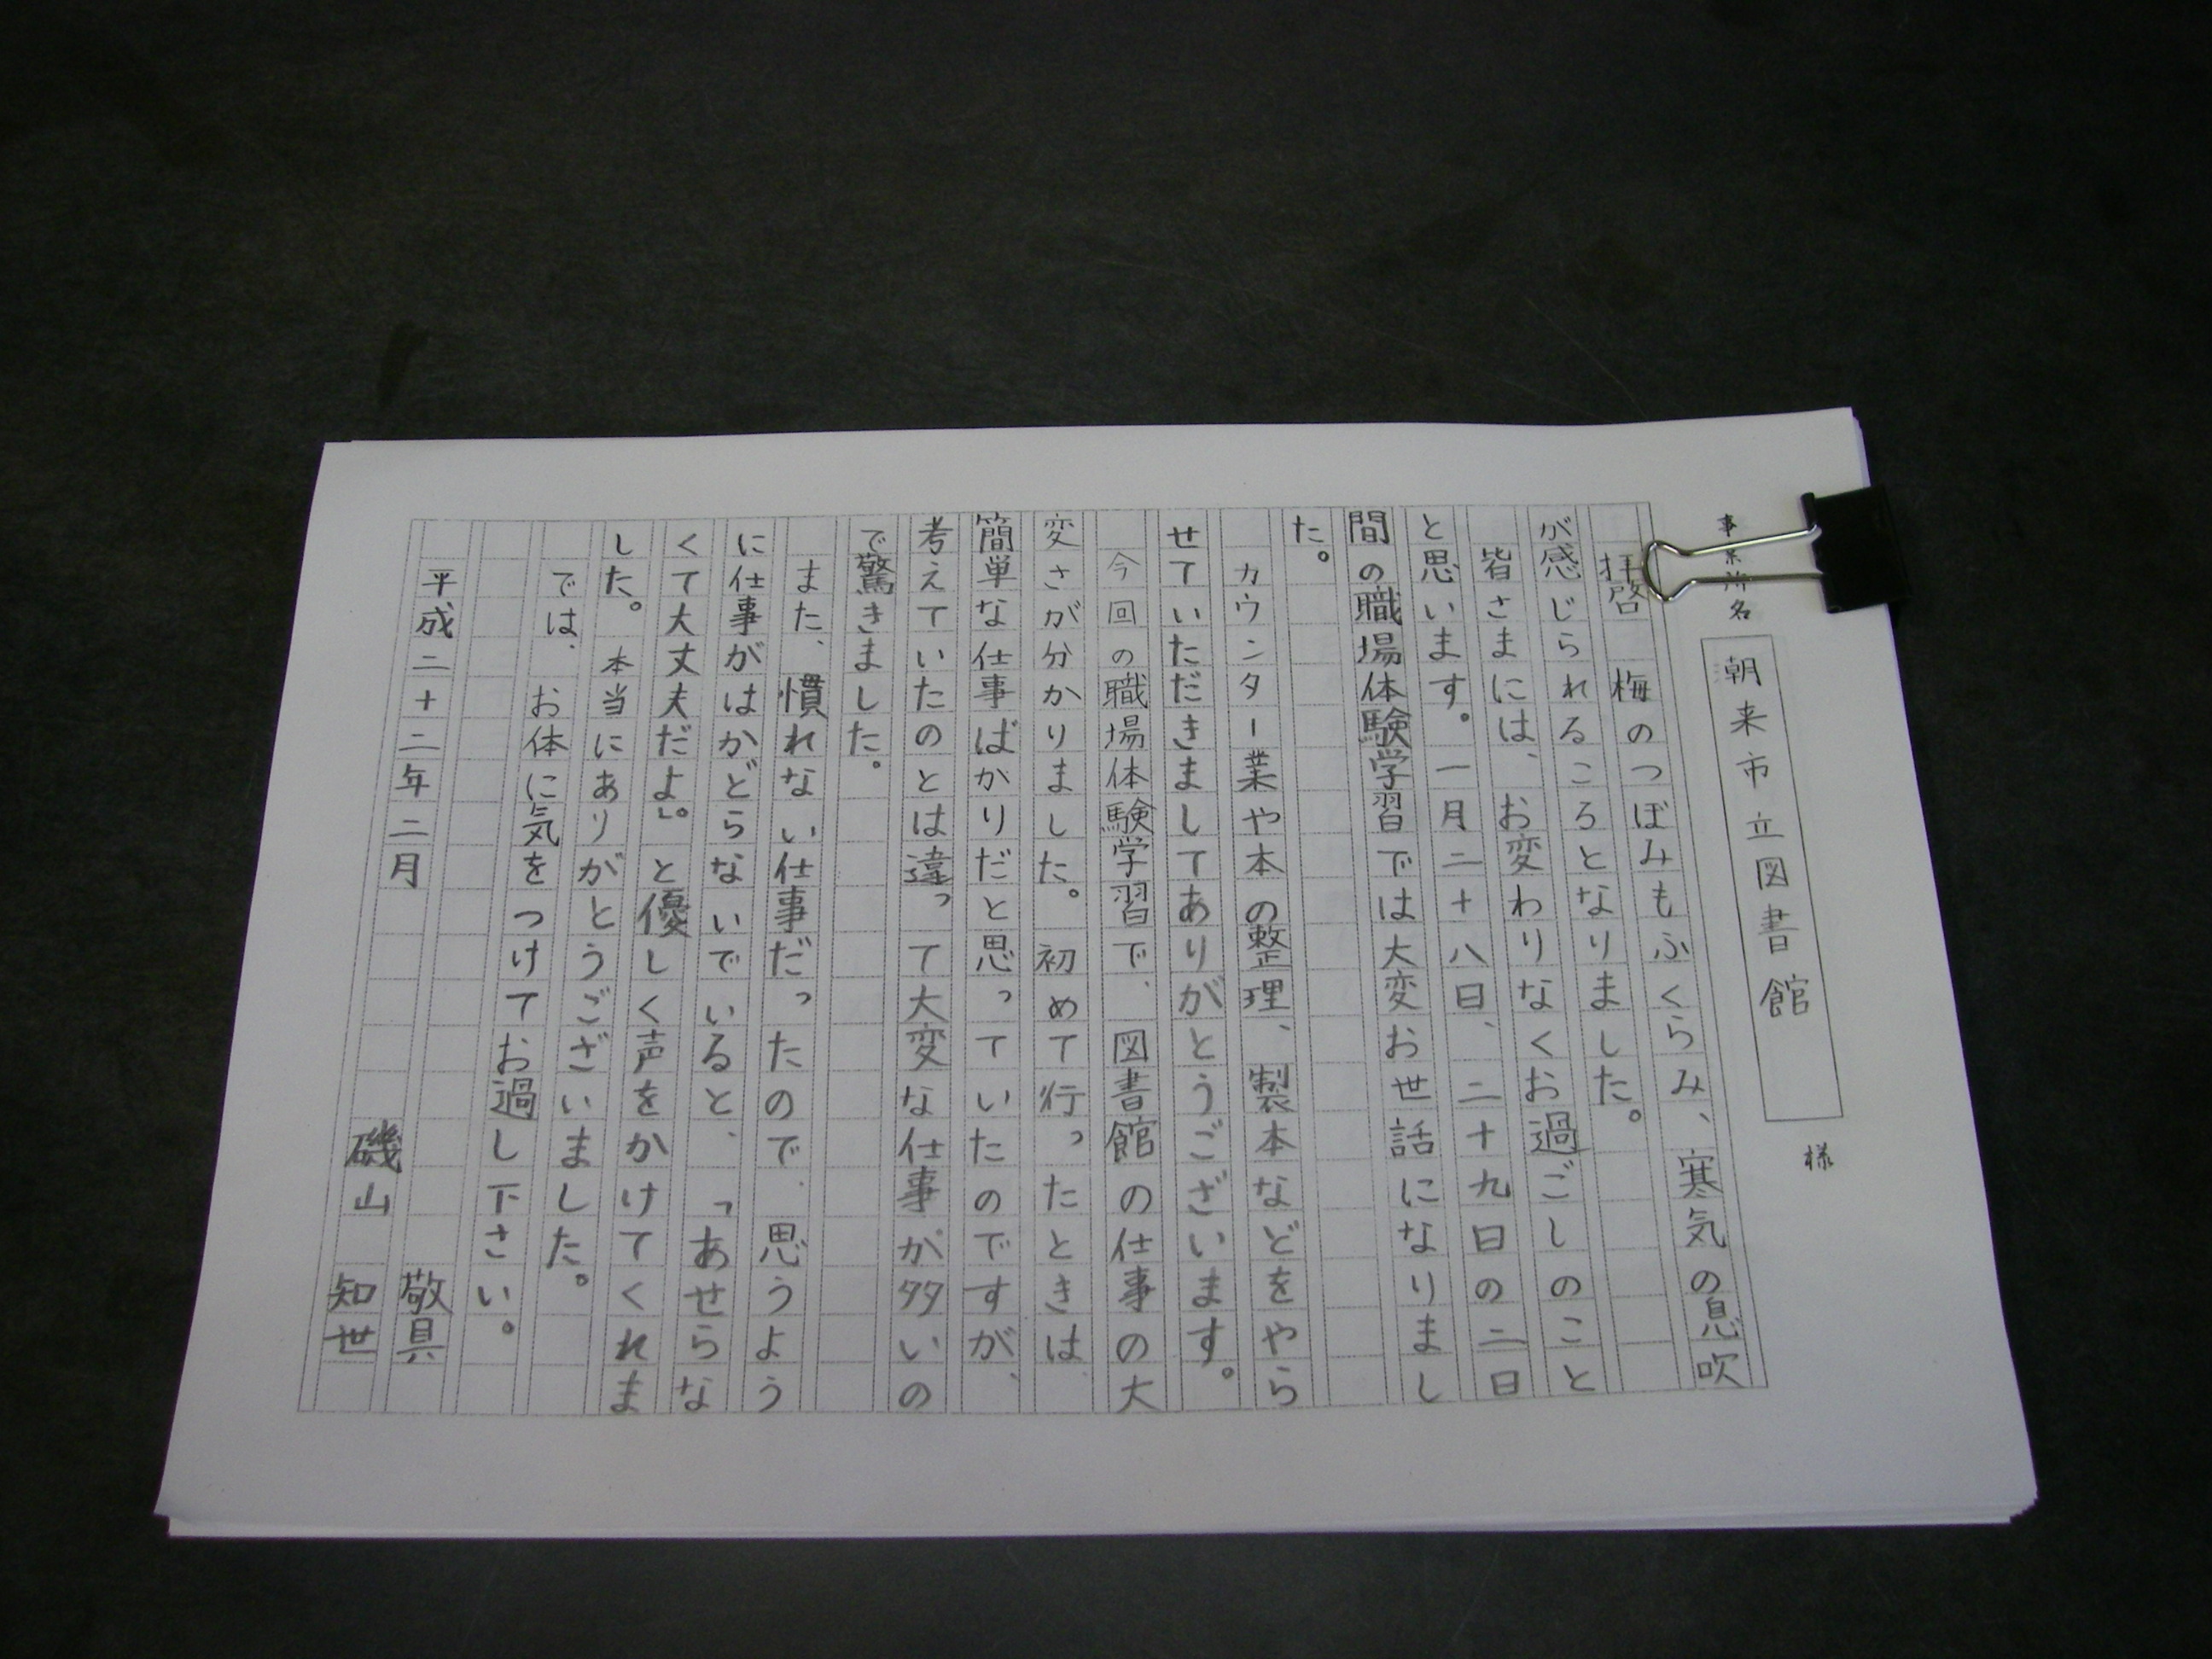 事業所名 朝来市立図書館 様
拝啓 梅のつぼみもふくらみ、寒気の息吹
が感じられるころとなりました。
皆さまには、お変わりなくお過ごしのこと
と思います。一月二十八日、二十九日の二日
間の職場体験学習では大変お世話になりまし
た。
カウンター業や本の整理、製本などをやら
せていただきましてありがとうございます。
今回の職場体験学習で、図書館の仕事の大
変さが分かりました。初めて行ったときは、
簡単な仕事ばかりだと思っていたのですが、
考えていたのとは違って大変な仕事が多いの
で驚きました。
また、慣れない仕事だったので、思うよう
に仕事がはかどらないでいると、「あせらな
くて大丈夫だよ。」と優しく声をかけてくれま
した。本当にありがとうございました。
では、お体に気をつけてお過し下さい。
敬具
平成二十二年二月
磯山 知世